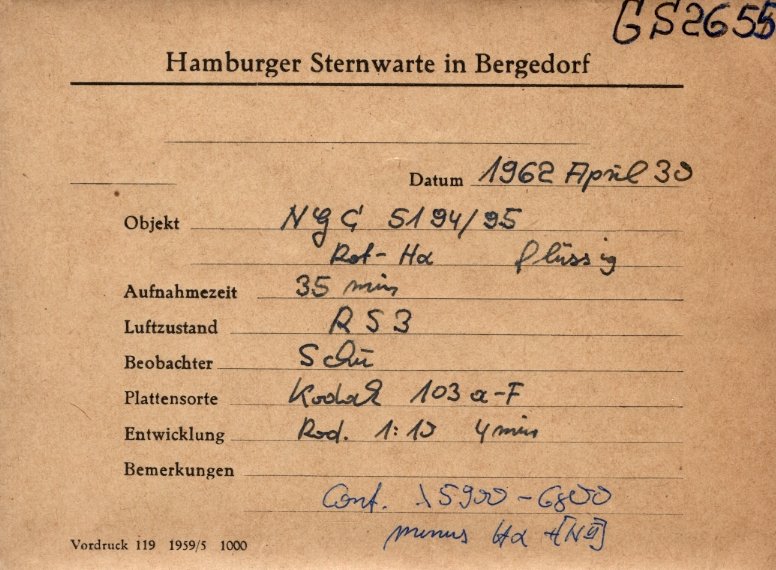 GS2655
Hamburger Sternwarte in Bergedorf
Datum 1962 April 30
Objekt NGC 5194/95
Rot-Hα flüssig
Aufnahmezeit 35 min
Luftzustand R S 3
Beobachter Schü
Plattensorte Kodak 103 a-F
Entwicklung Rod. 1:10 4 min
Bemerkungen
Cont. λ 5900-6800
minus Hα +[NII]
Vordruck 119 1959/5 1000